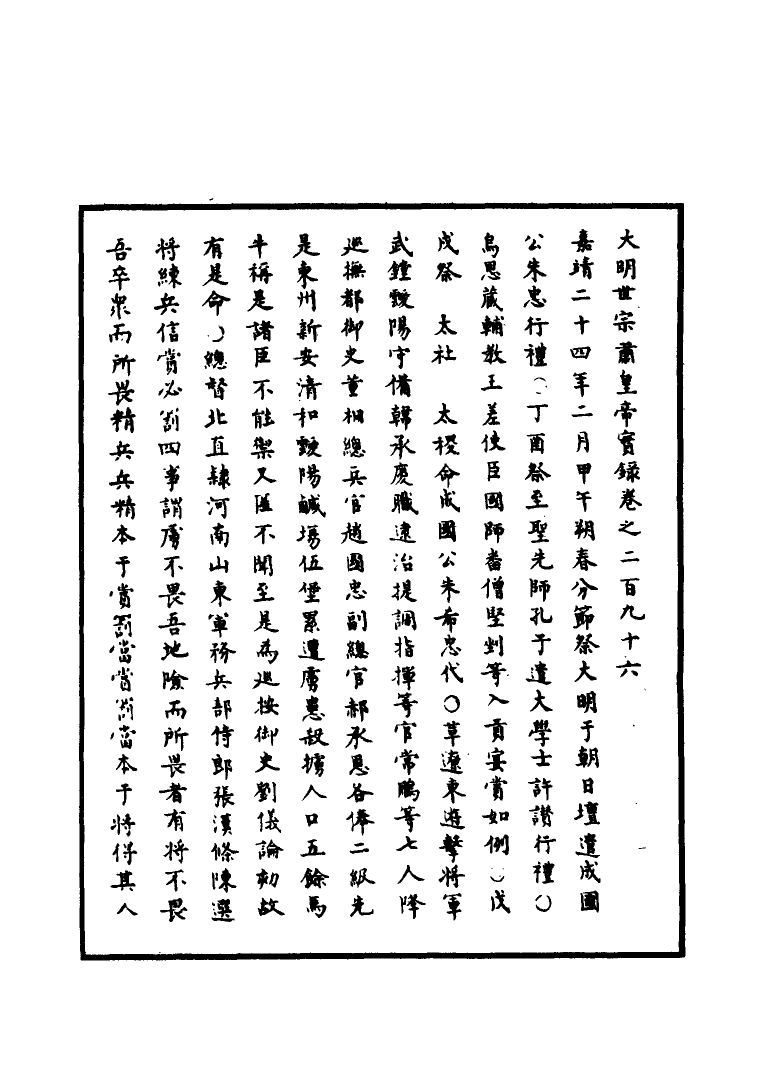 大明世宗肅皇帝實錄卷之二百九十六
嘉靖二十四年二月甲午朔春分節祭大明于朝日壇遣成國
公朱忠行禮○丁酉祭至聖先師孔子遣大學士許讚行禮○
烏思藏輔教王差使臣國師畨僧堅剉等入貢宴賞如例○戊
戌祭 太社 太稷命成國公朱希忠代○革遼東遊擊將軍
武鏜靉陽守備韓承慶職逮治提調指揮等官常鵬等七人降
巡撫都御史董相總兵官趙國忠副總官郝承恩各俸二級先
是東州新安清和靉陽鹹塲伍堡累遭虜患殺擄人口五餘馬
牛稱是諸臣不能禦又匿不聞至是為巡按御史劉儀論劾故
有是命○總督北直隸河南山東軍務兵部侍郎張漢條陳選
將練兵信賞必罰四事謂虜不畏吾地險而所畏者有將不畏
吾卒眾而所畏精兵兵精本于賞罰當賞罰當本于將得其人